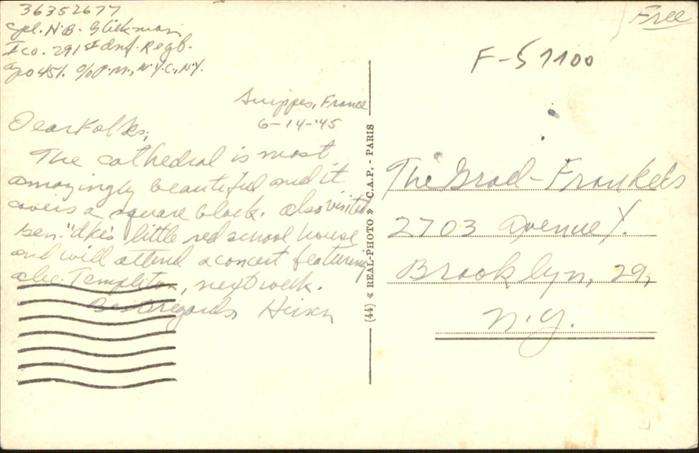 36352677
Cpl. N.B. Glickman
I Co. 291st Inf. Regt.
APO 451 c/o P.M., N.Y.C., N.Y.
Free
F-51100
Suippes, France
6-14-'45
Dear Folks,
The cathedral is most
amazingly beautiful and it
covers a square block. Also visited
Gen. "Ike's little red school house
and will attend a concert featuring
Alec Templeton, next week.
Best regards,
(44) « REAL-PHOTO » C.A.P. - PARIS
The Grad-Frankels
2703 Avenue Y.
Brooklyn, 29,
N.Y.